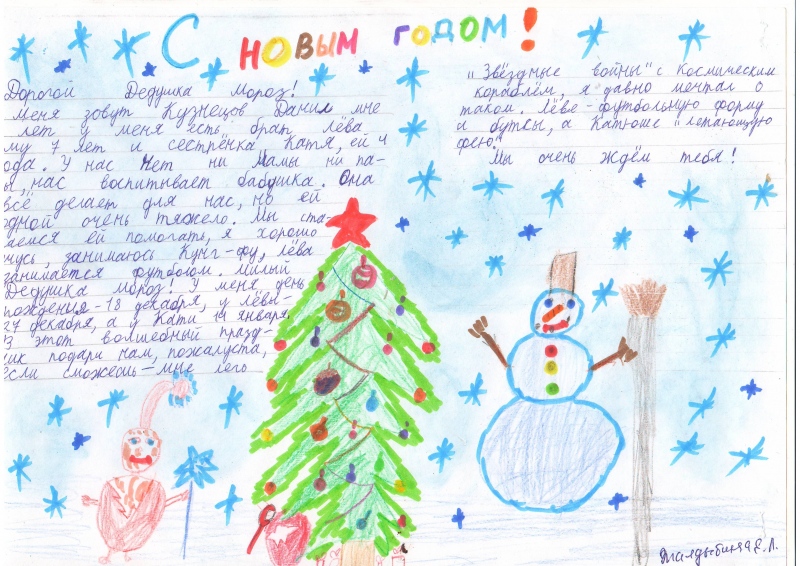 С НОВЫМ ГОДОМ!
Дорогой Дедушка Мороз!
Меня зовут Кузнецов Данил мне
лет у меня есть брат Лёва
му 7 лет и сестрёнка Катя, ей 4
ода. У нас нет ни мамы ни па-
ы, нас воспитывает бабушка. Она
всё делает для нас, но ей
одной очень тяжело. Мы ста-
аемся ей помогать, я хорошо
чусь, занимаюсь Кунг-фу, Лёва
занимается футболом. Милый
Дедушка Мороз! У меня день
рождения - 18 декабря, у Лёвы -
27 декабря, а у Кати 14 января.
В этот волшебный празд-
ник подари нам, пожалуста,
если сможешь - мне лего
"Звёздные войны" с космическим
кораблём, я давно мечтал о
таком. Лёве - футбольную форму
и бутсы, а Катюше "летающую
фею."
Мы очень ждём тебя!